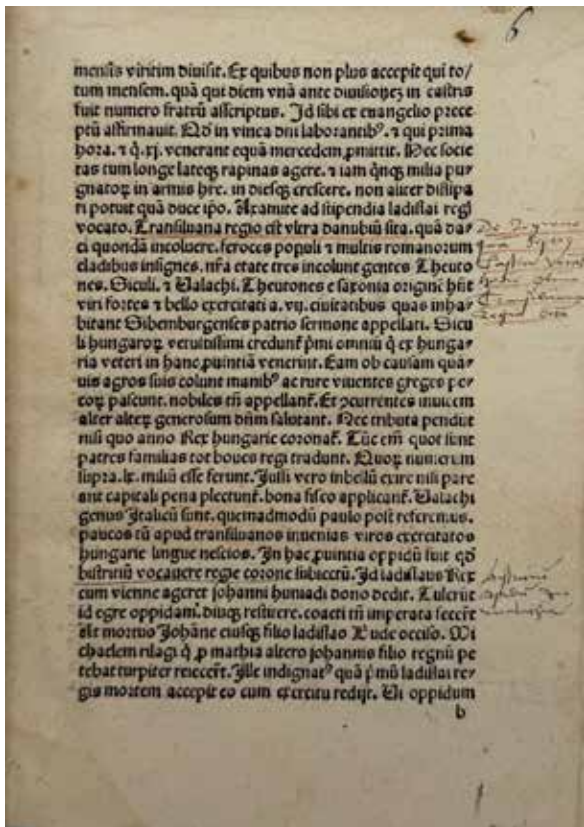 6
mensis viritim diuisit. Ex quibus non plus accepit qui to/
tum mensem. quã qui diem vnã ante diuisionez in castris
fuit numero fratrũ asscriptus. Id sibi ex euangelio prece
ptũ affirmauit. Qd in vinea dni laborantibꝰ. ⁊ qui prima
hora. ⁊ q̃. xj. venerant equã mercedem ꝓmittit. Hec socie
tas cum longe lateqꝫ rapinas agere. ⁊ iam qñqꝫ milia pu⸗
gnatoꝝ in armis hr̃e. in diesqꝫ crescere. non aliter dissipa
ri potuit quã duce ip̃o. Axamite ad stipendia ladislai regl
vocato. Transiluana regio est vltra danubiũ sita. quã da⸗
ci quondã incoluere. feroces populi ⁊ multis romanorum
cladibus insignes. nr̃a etate tres incolunt gentes Theuto
nes. Siculi. ⁊ Valachi. Theutones e saxonia originẽ hñt
viri fortes ⁊ bello exercitati a. vij. ciuitatibus quas inha⸗
bitant Sibemburgenses patrio sermone appellati. Sicu
li hungaroꝝ vetustissimi credunt᷑ pͥmi omniũ q̃ ex hunga⸗
ria veteri in hanc ꝓuintiã venerint. Eam ob causam quã⸗
uis agros suis colunt manibꝰ ac rure viuentes greges pe⸗
coꝝ pascunt. nobiles tñ appellant᷑. Et ꝯcurrentes inuicem
alter alteꝝ generosum dñm salutant. Nec tributa pendũt
nisi quo anno Rex hungarie coronat᷑. Tũc em̃ quot sunt
patres familias tot boues regi tradunt. Quoꝝ numerum
supra. lx. miliũ esse ferunt. Iussi vero in bellũ exire nisi pare
ant capitali pena plectunt᷑. bona fisco applicant᷑. Valachi
genus Italicũ sunt. quemadmodũ paulo post referemus.
paucos tñ apud transiluanos inuenias viros exercitatos
hungarie lingue nescios. In hac ꝓuintia oppidũ fuit qd̃
bistritiũ vocauere regie corone subiectũ. Id ladislaus Rex
cum vienne ageret johanni huniadi dono dedit. Tulerũt
id egre oppidani. diuqꝫ restitere. coacti tñ imperata fecer̃t
ast mortuo Iohãne eiusqꝫ filio ladislao Bude occiso. Mi
chaelem zilagi q̃ ꝓ mathia altero johannis filio regnũ pe
tebat turpiter reiecer̃t. Ille indignatꝰ quã pͥmũ ladislai re⸗
gis mortem accepit eo cum exercitu redijt. Vi oppidum
b